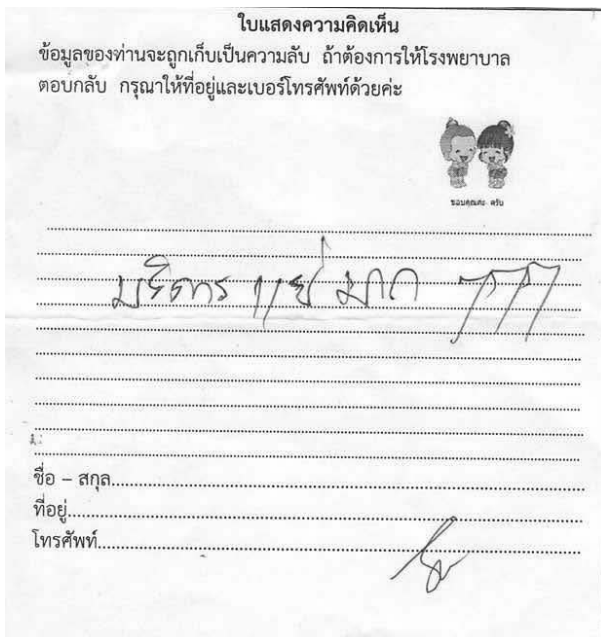 ใบแสดงความคิดเห็น
ข้อมูลของท่านจะถูกเก็บเป็นความลับ ถ้าต้องการให้โรงพยาบาล
ตอบกลับ กรุณาให้ที่อยู่และเบอร์โทรศัพท์ด้วยค่ะ
ขอบคุณค่ะ ครับ
แย่ มาก ๆๆๆ
ชื่อ – สกุล
ที่อยู่
โทรศัพท์